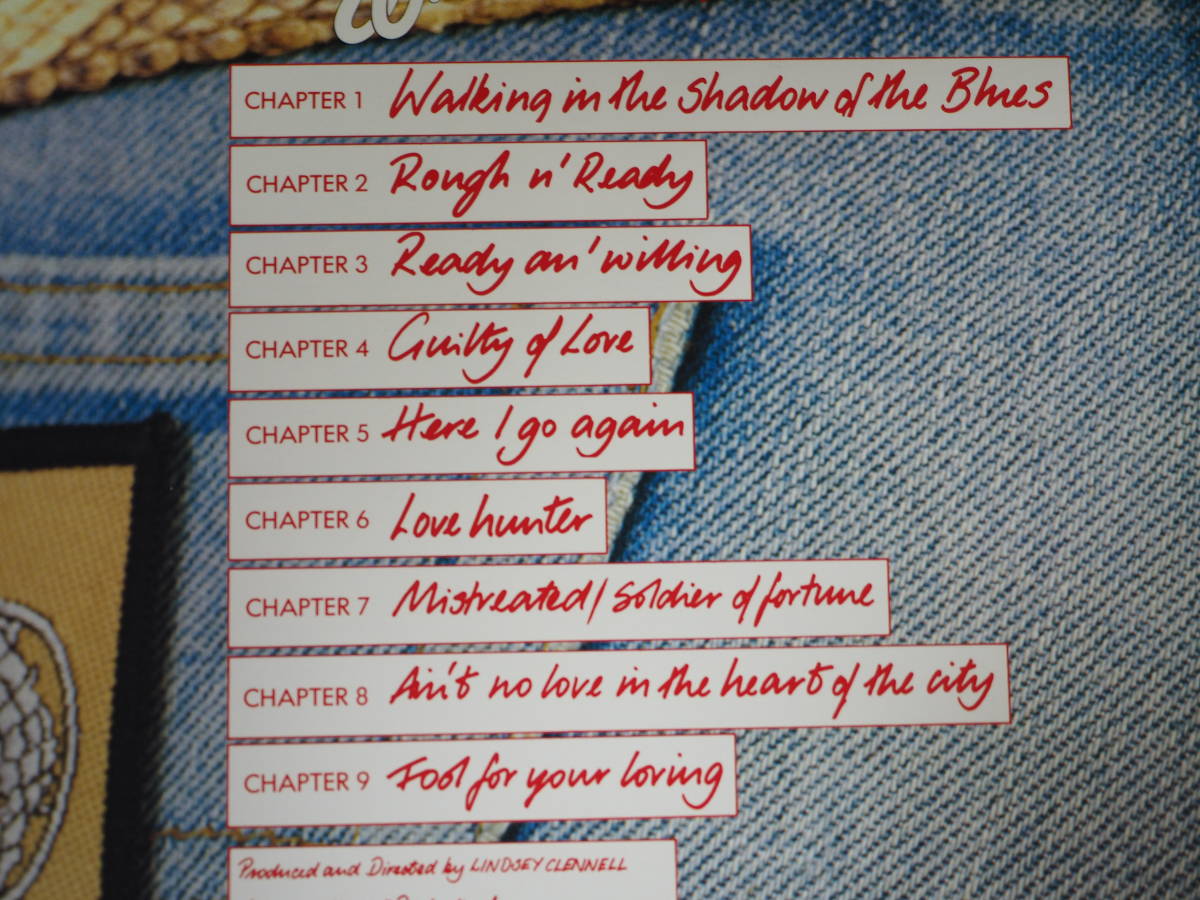 CHAPTER 1 Walking in the Shadow of the Blues
CHAPTER 2 Rough n' Ready
CHAPTER 3 Ready an' willing
CHAPTER 4 Guilty of Love
CHAPTER 5 Here I go again
CHAPTER 6 Love hunter
CHAPTER 7 Mistreated/Soldier of fortune
CHAPTER 8 Ain't no love in the heart of the city
CHAPTER 9 Fool for your loving
Produced and Directed by LINDSEY CLENNELL